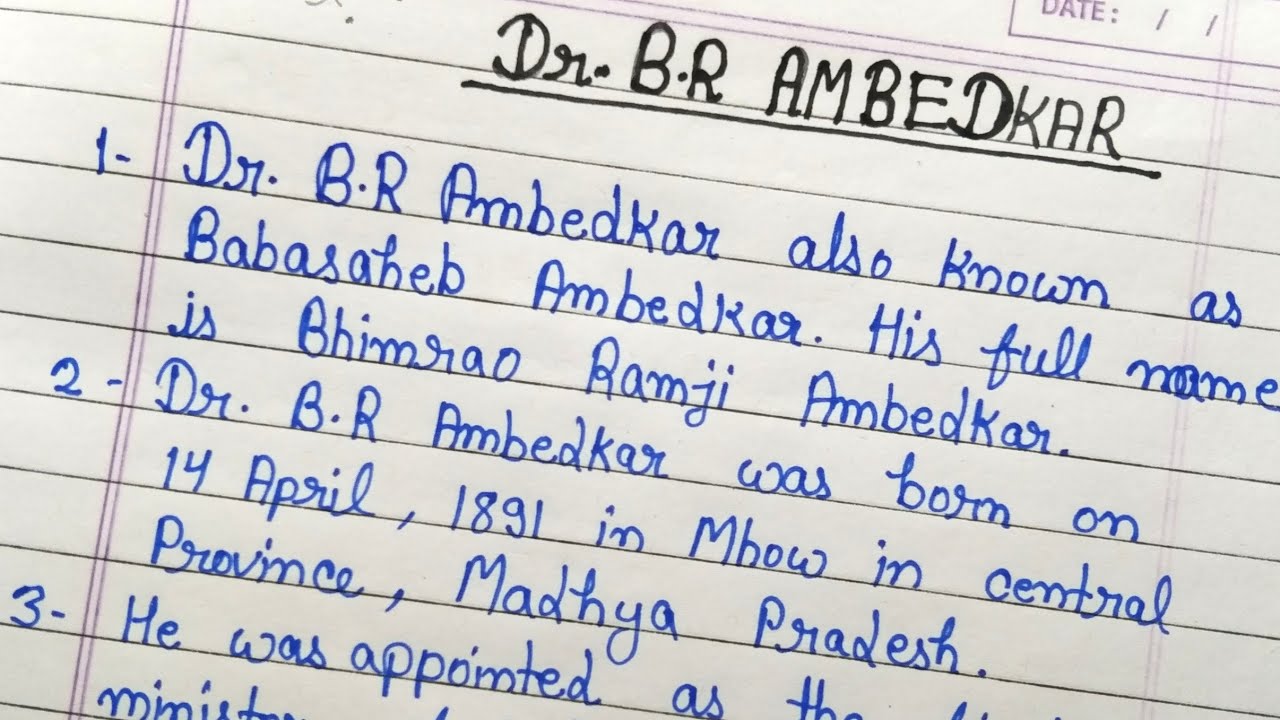 DATE: / /
Dr. B.R AMBEDKAR
1- Dr. B.R Ambedkar also known as
Babasaheb Ambedkar. His full name
is Bhimrao Ramji Ambedkar.
2- Dr. B.R Ambedkar was born on
14 April, 1891 in Mhow in central
Province, Madhya Pradesh.
3- He was appointed as the